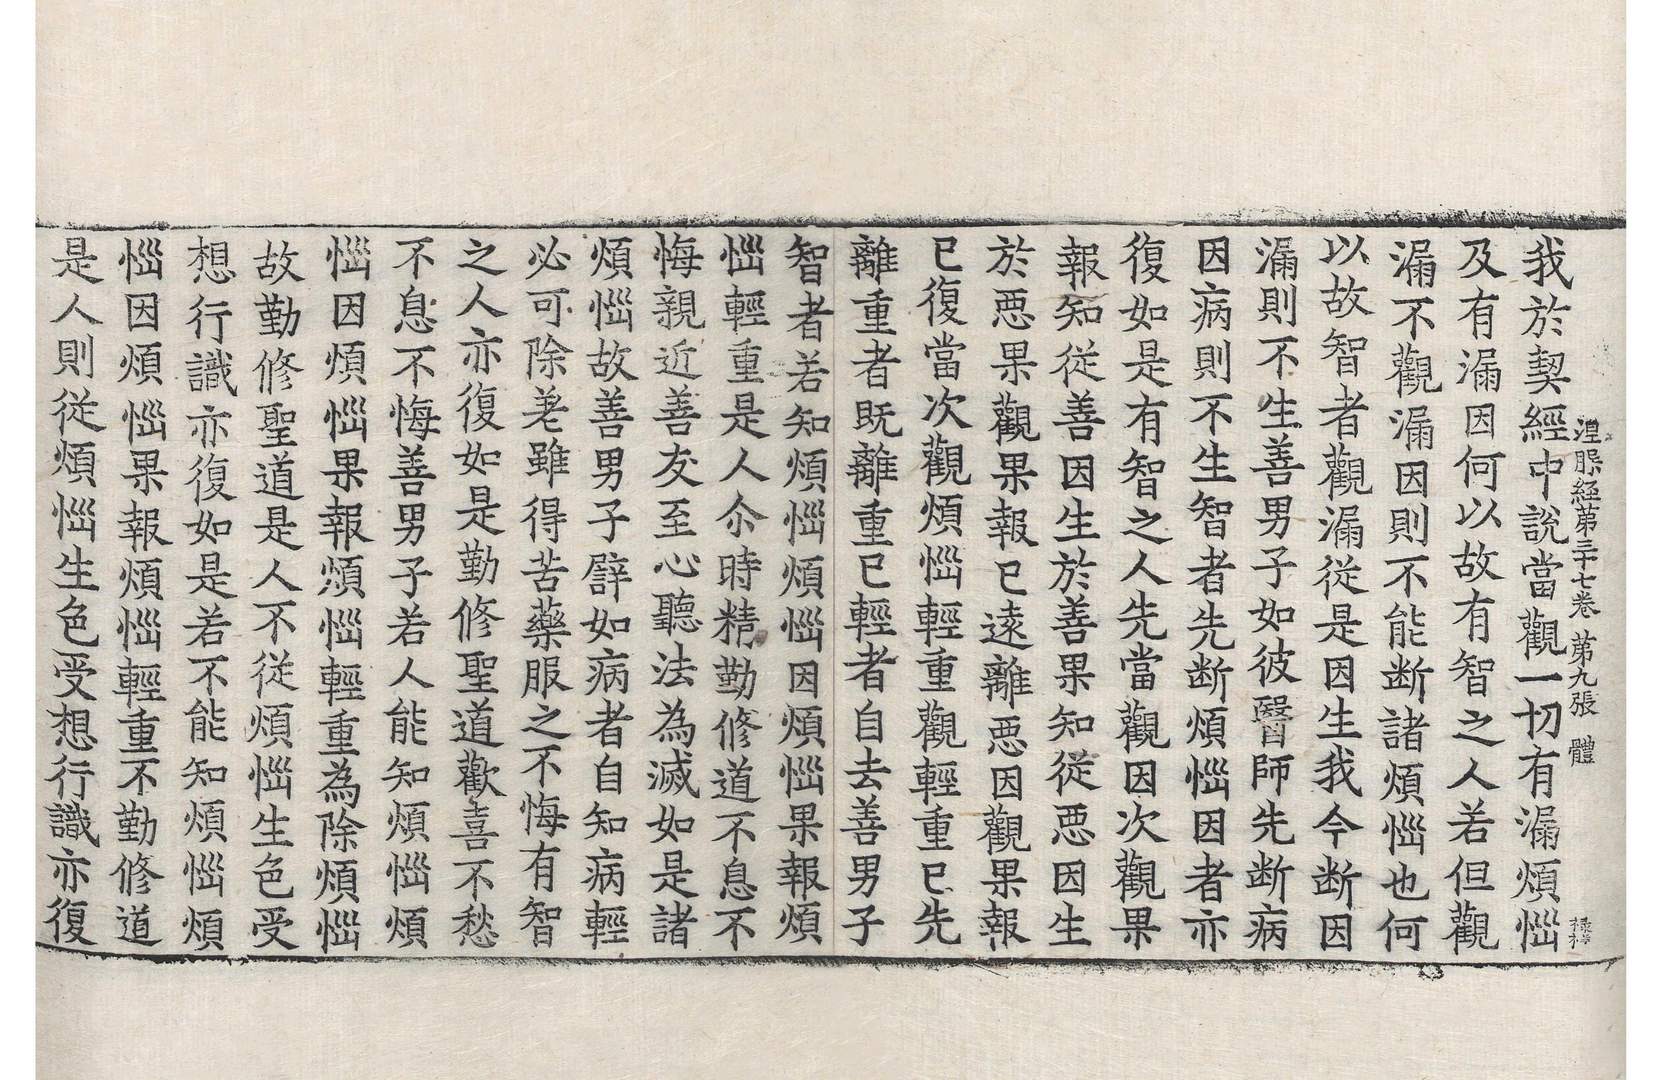 我於契經中說當觀一切有漏煩惱
湼槃経第三十七巻 第九張 體
及有漏因何以故有智之人若但觀
漏不觀漏因則不能断諸煩惱也何
以故智者觀漏從是因生我今断因
漏則不生善男子如彼醫師先断病
因病則不生智者先断煩惱因者亦
復如是有智之人先當觀因次觀果
報知從善因生於善果知從悪因生
於悪果觀果報已遠離悪因觀果報
已復當次觀煩惱輕重觀輕重已先
離重者既離重已輕者自去善男子
智者若知煩惱煩惱因煩惱果報煩
惱輕重是人尒時精勤修道不息不
悔親近善友至心聽法為滅如是諸
煩惱故善男子譬如病者自知病輕
必可除差雖得苦藥服之不悔有智
之人亦復如是勤修聖道歡喜不愁
不息不悔善男子若人能知煩惱煩
惱因煩惱果報煩惱輕重為除煩惱
故勤修聖道是人不從煩惱生色受
想行識亦復如是若不能知煩惱煩
惱因煩惱果報煩惱輕重不勤修道
是人則從煩惱生色受想行識亦復